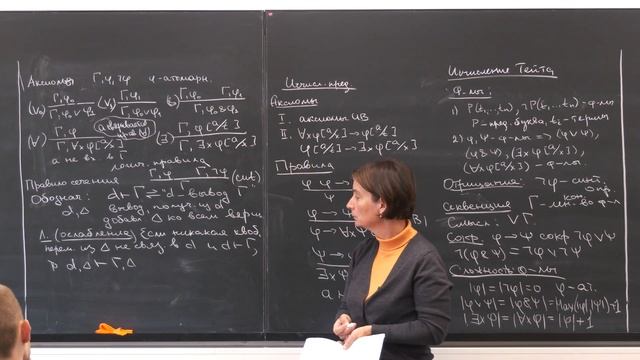 Аксиомы Γ,φ,¬φ φ-атомарн.
(∨₀) Γ,φ₀ / Γ,φ₀∨φ₁ (∨₁) Γ,φ₁ / Γ,φ₀∨φ₁ Γ,φ₀ Γ,φ₁ / Γ,φ₀&φ₁
(∀) Γ,φ / Γ,∀xφ[a/x] (∃) Γ,φ[a/t] / Γ,∃xφ[a/x]
a не вх. в Γ
правила
Правило сечения Γ,φ Γ,¬φ / Γ (cut)
Обознач: d⊢Γ ⇌ "d-вывод Γ"
d,Δ вывод, получ. из d
добавл Δ ко всем верш
Л. (ослабление) Если никакая своб.
перем. из Δ не связ. в d и d⊢Γ,
то d,Δ⊢Γ,Δ
Исчисл. пред.
Аксиомы
I. аксиомы ИВ
II. ∀xφ[a/x]→φ[a/t]
φ[a/t]→∃xφ[a/x]
Правила
φ φ→
ψ
φ→
φ→∀x
∃x
Исчисление Тейта
Ф-лы:
1) P(t₁,...,tₙ), ¬P(t₁,...,tₙ)-ф-лы
P-пред. буква, tᵢ-термы
2) φ,ψ-ф-лы ⇒ (φ∨ψ),
(φ&ψ), (∃xφ[a/x]),
(∀xφ[a/x]) - ф-лы.
Отрицание: ¬φ-синт. опр.
Секвенция Γ-кон. мн-во ф-л
Смысл: ∨Γ
Сокр. φ→ψ сокр ¬φ∨ψ
¬(φ&ψ)=¬φ∨¬ψ
Сложность ф-лы
|φ|=|¬φ|=0 φ-ат.
|φ∨ψ|=|φ&ψ|=max(|φ|,|ψ|)+1
|∃xφ|=|∀xφ|=|φ|+1